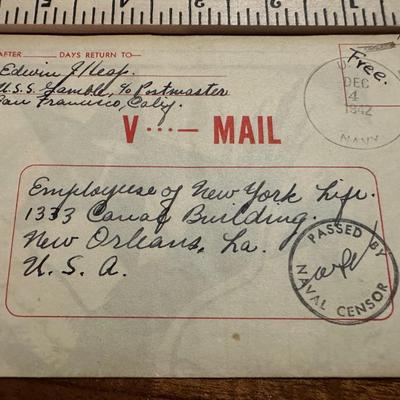 AFTER DAYS RETURN TO—
Edwin J. Heap
U.S.S. Gamble, % Postmaster
San Francisco, Calif.
Free.
U.
DEC
4
1942
NAVY
V···— MAIL
Employees of New York Life.
1333 Canal Building.
New Orleans, La.
U. S. A.
PASSED BY
NAVAL CENSOR